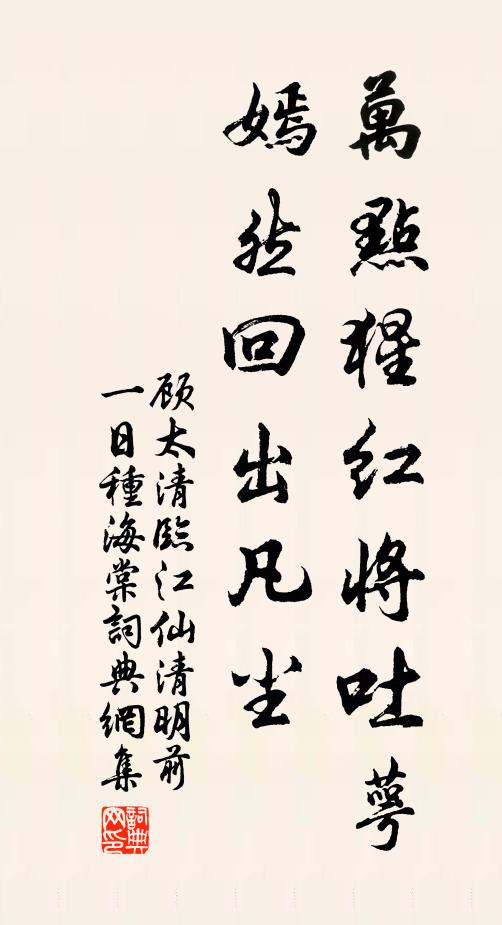 萬點猩紅將吐萼
嫣然回出凡尘
顾太清臨江仙清明前
一日種海棠詞典網集
詞典网印